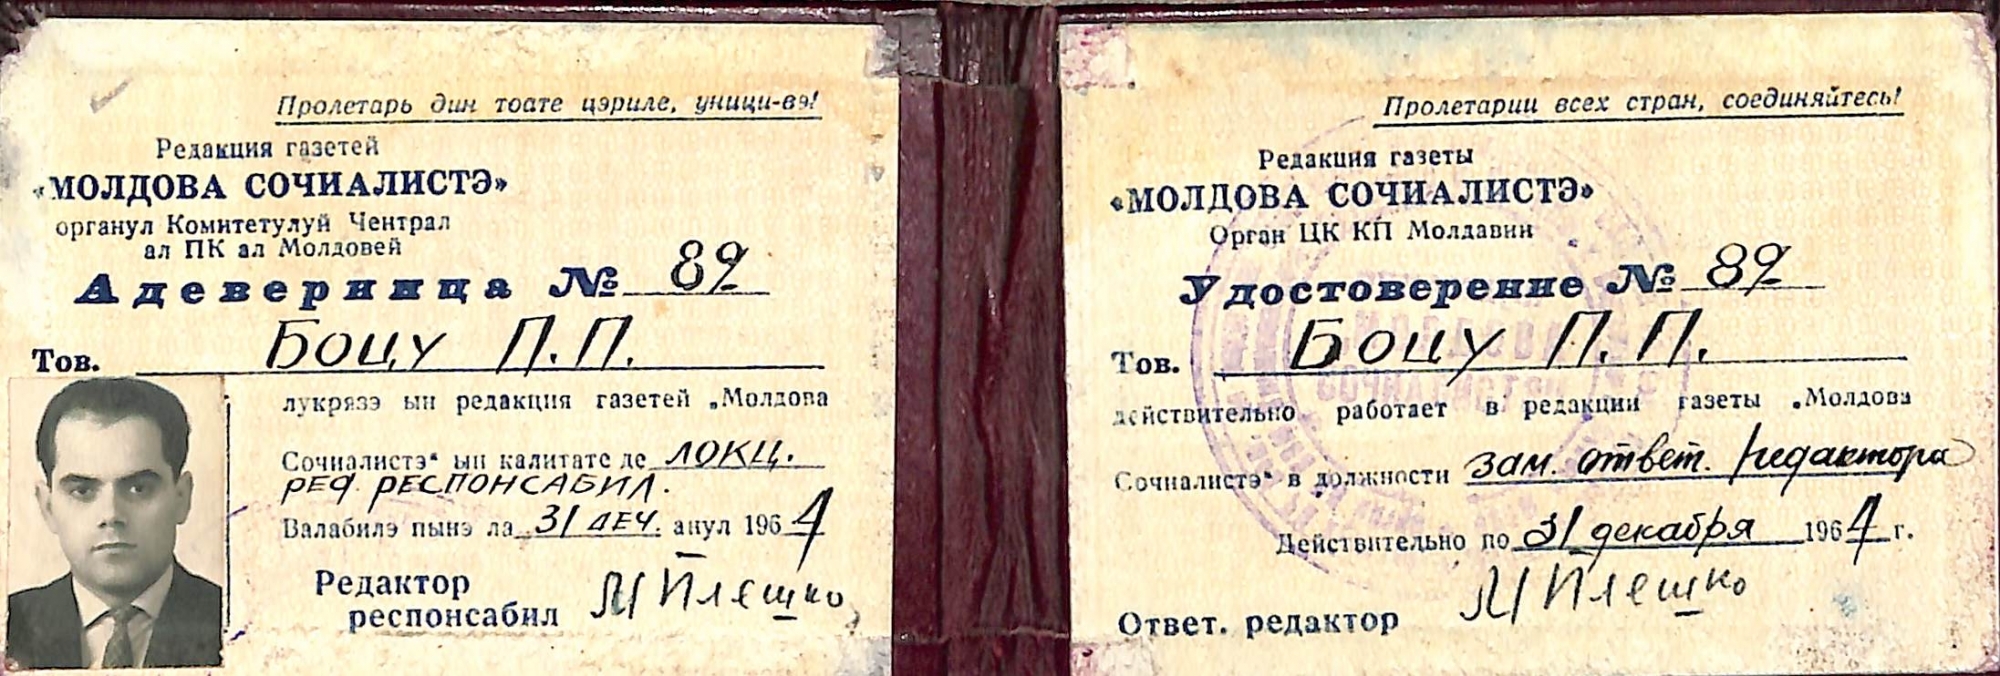 Пролетарь дин тоате цэриле, уници-вэ!
Редакция газетей
«МОЛДОВА СОЧИАЛИСТЭ»
органул Комитетулуй Чентрал
ал ПК ал Молдовей
Адеверинца № 89
Тов. Боцу П.П.
лукрязэ ын редакция газетей „Молдова
Сочиалистэ“ ын калитате де ЛОКЦ.
РЕД. РЕСПОНСАБИЛ.
Валабилэ пынэ ла 31 ДЕЧ. анул 1964
Редактор
респонсабил М Илешко
Пролетарии всех стран, соединяйтесь!
Редакция газеты
«МОЛДОВА СОЧИАЛИСТЭ»
Орган ЦК КП Молдавии
Удостоверение № 89
Тов. Боцу П.П.
действительно работает в редакции газеты „Молдова
Сочиалистэ“ в должности зам. ответ. редактора
Действительно по 31 декабря 1964 г.
Ответ. редактор М Илешко